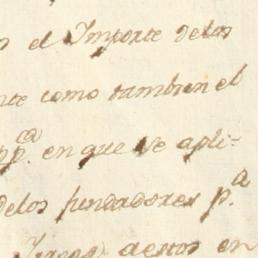 s el Importe delos
nte como tambien el
pp.^ca en que se apli=
delos fundadores p.^a
destos en